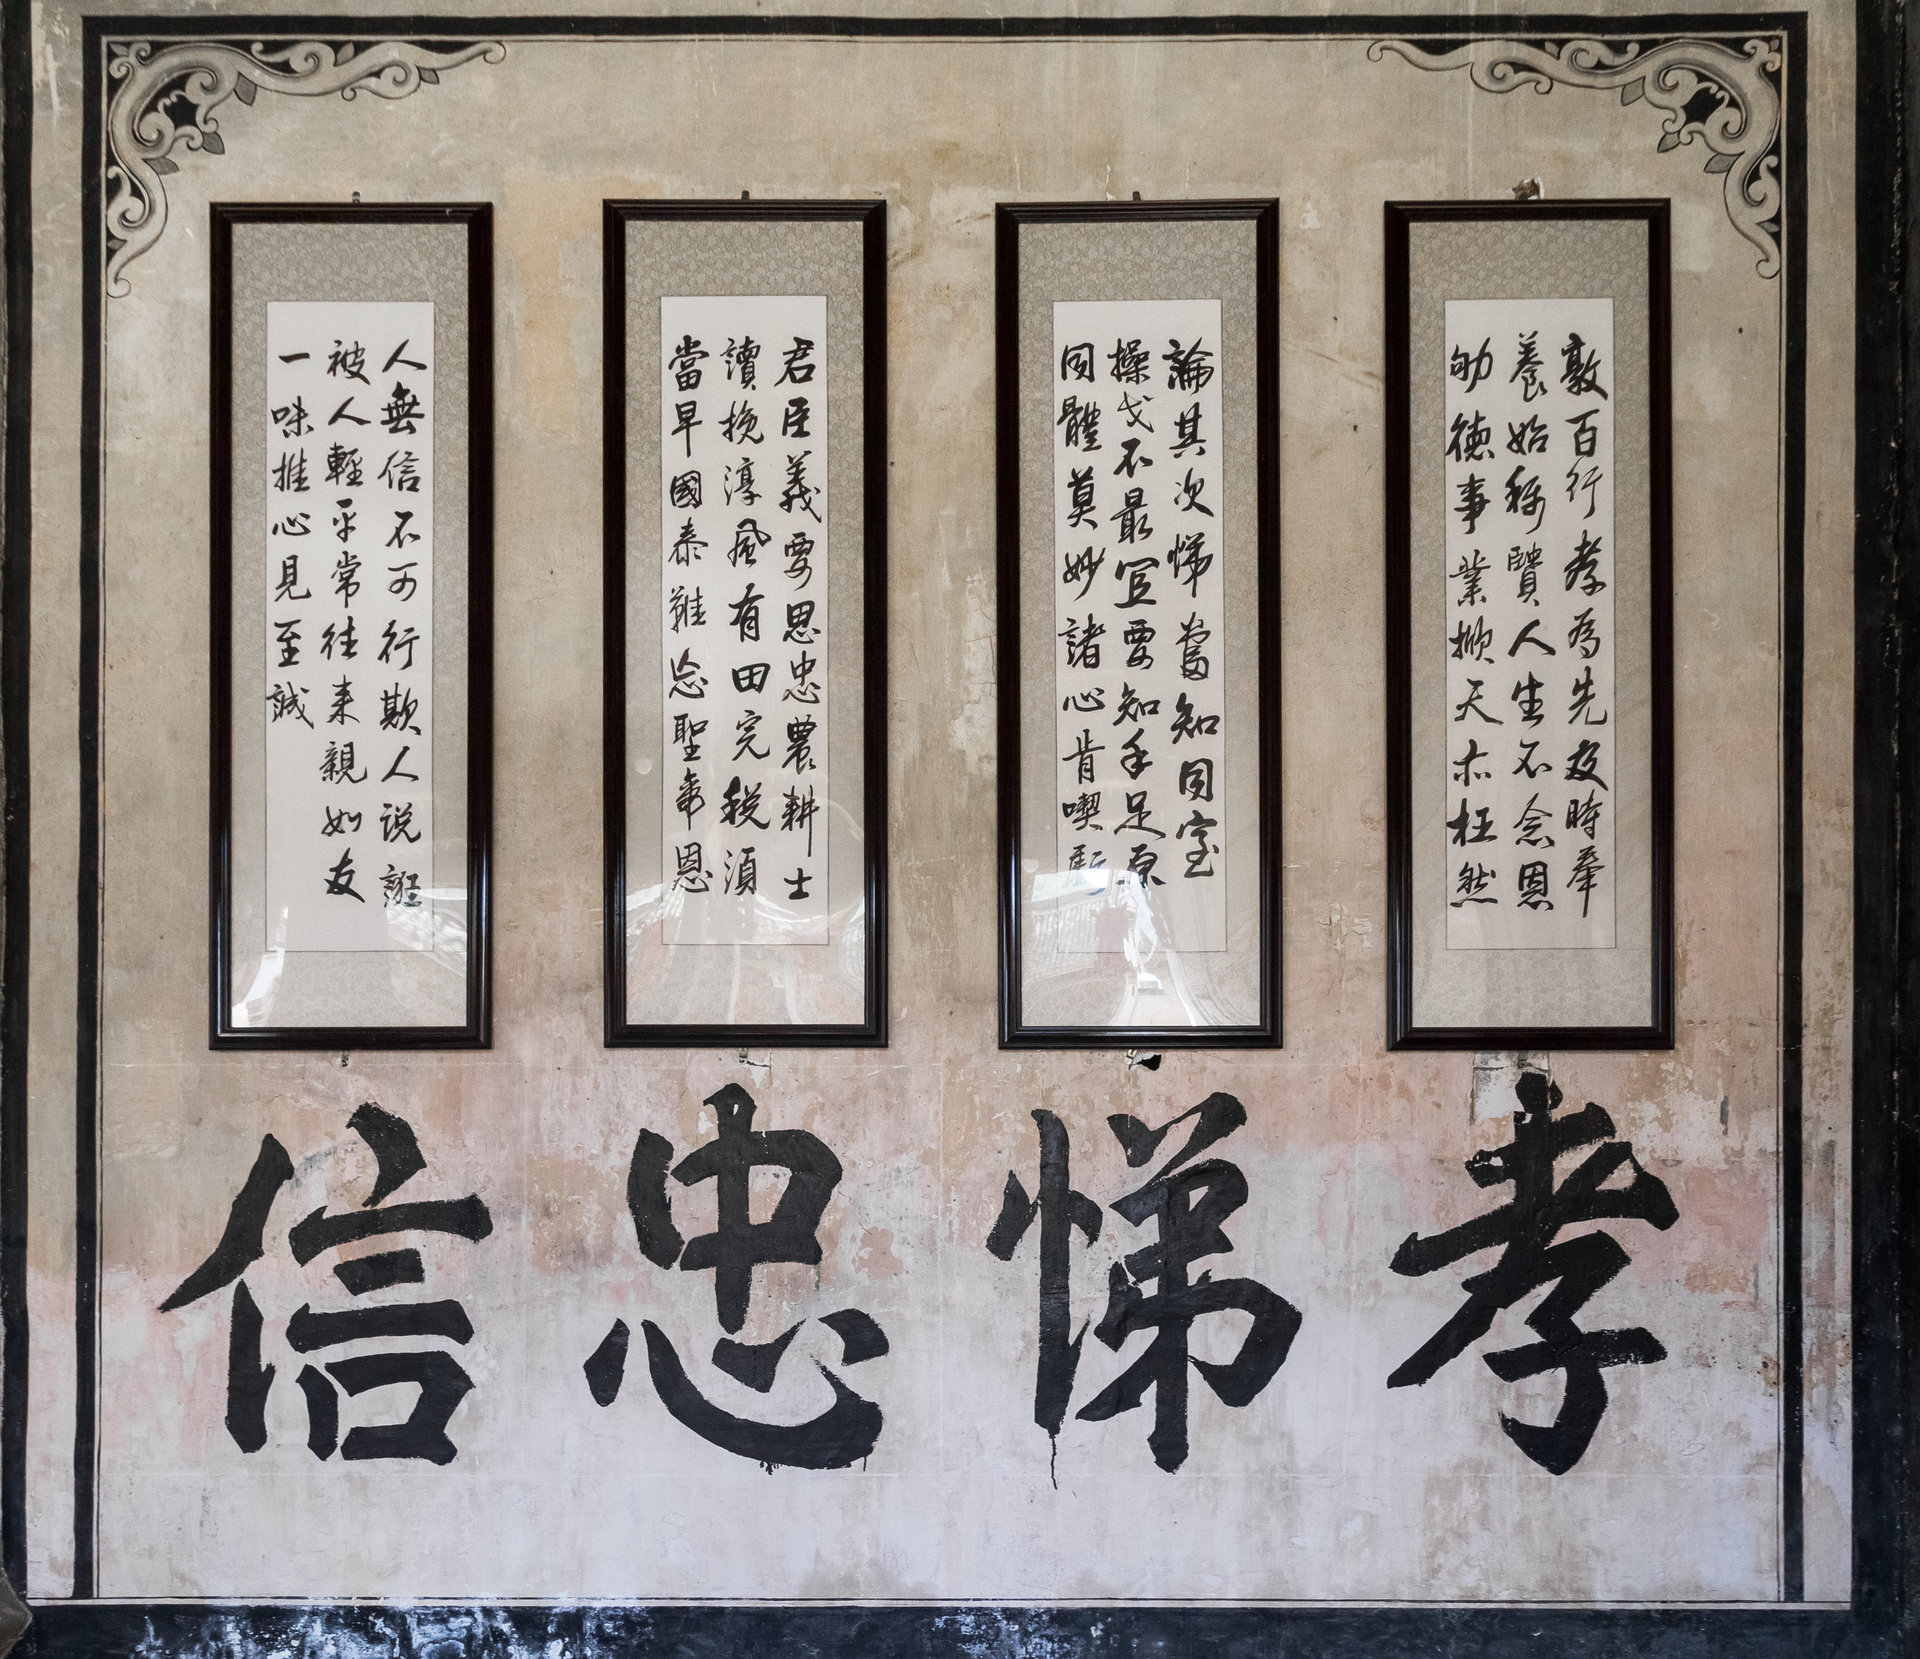 敦百行孝為先及時奉
養始稱賢人生不念恩
劬德事業掀天亦枉然
論其次悌當知同室
操戈不最宜要知手足原
同體莫妙諸心肯喫虧
君臣義要思忠農耕士
讀挽淳風有田完稅須
當早國泰難忘聖帝恩
人無信不可行欺人说誑
被人輕平常往来親如友
一味推心見至誠
孝悌忠信